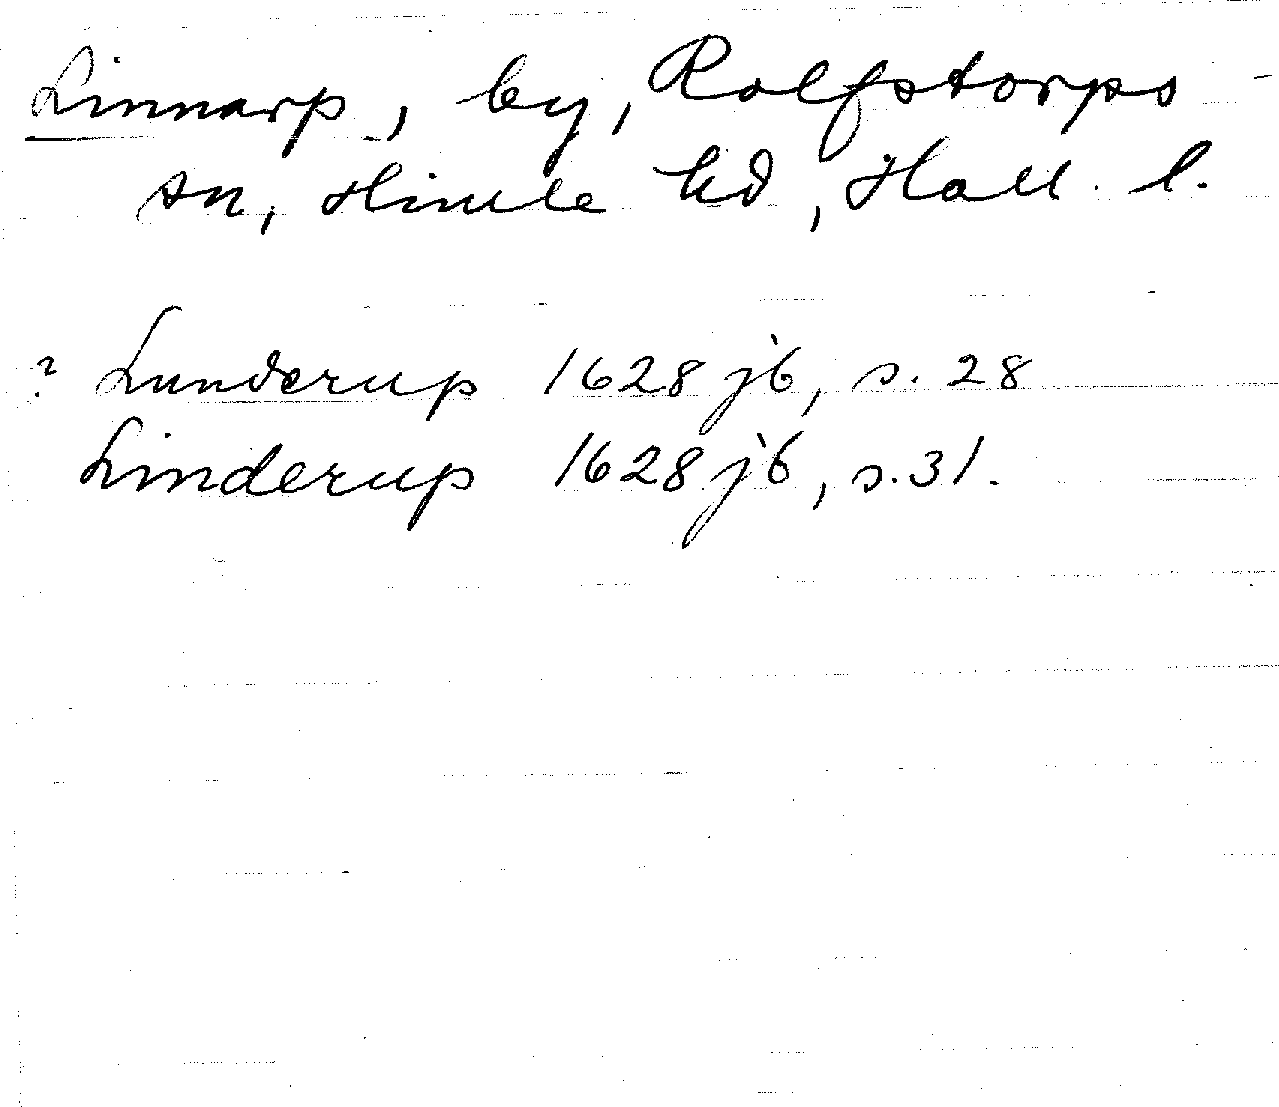 Linnarp, by, Rolfstorps -
sn, Himle hd, Hall. l.
? Lunderup 1628 jb, s. 28
Linderup 1628 jb, s. 31.